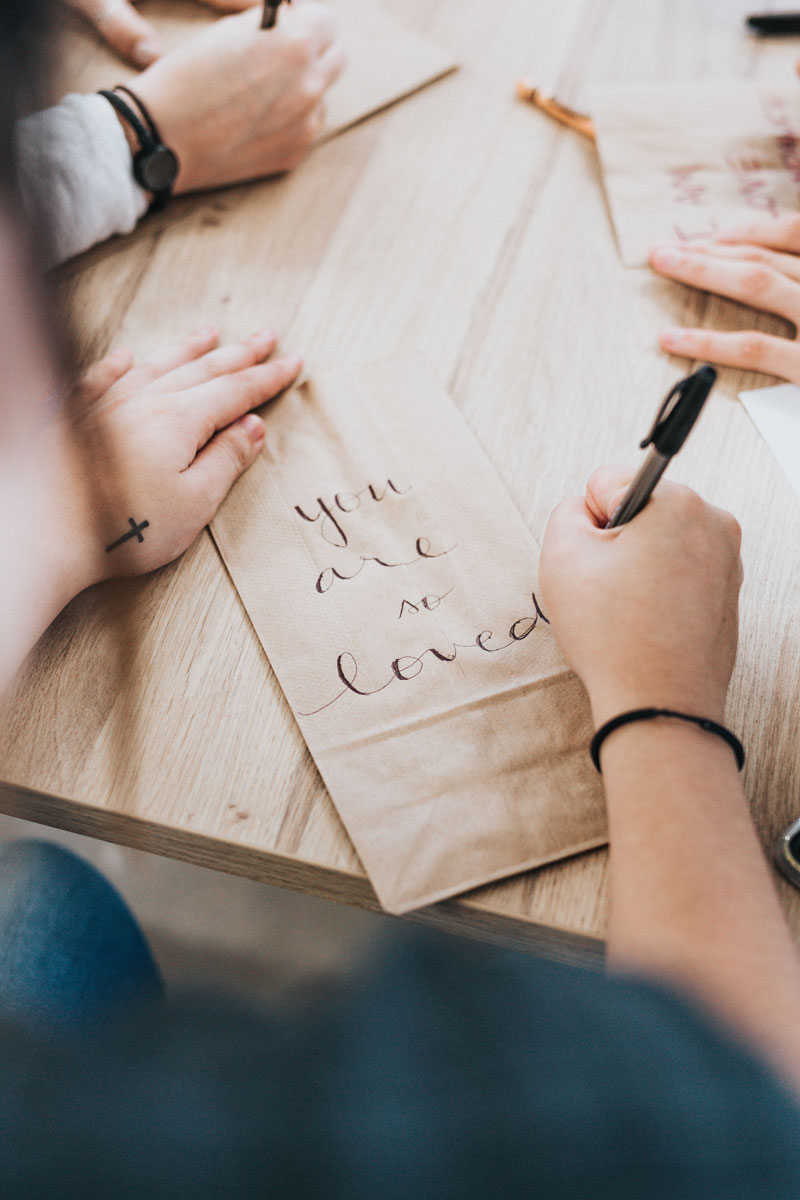 you
are
so
loved
I AM